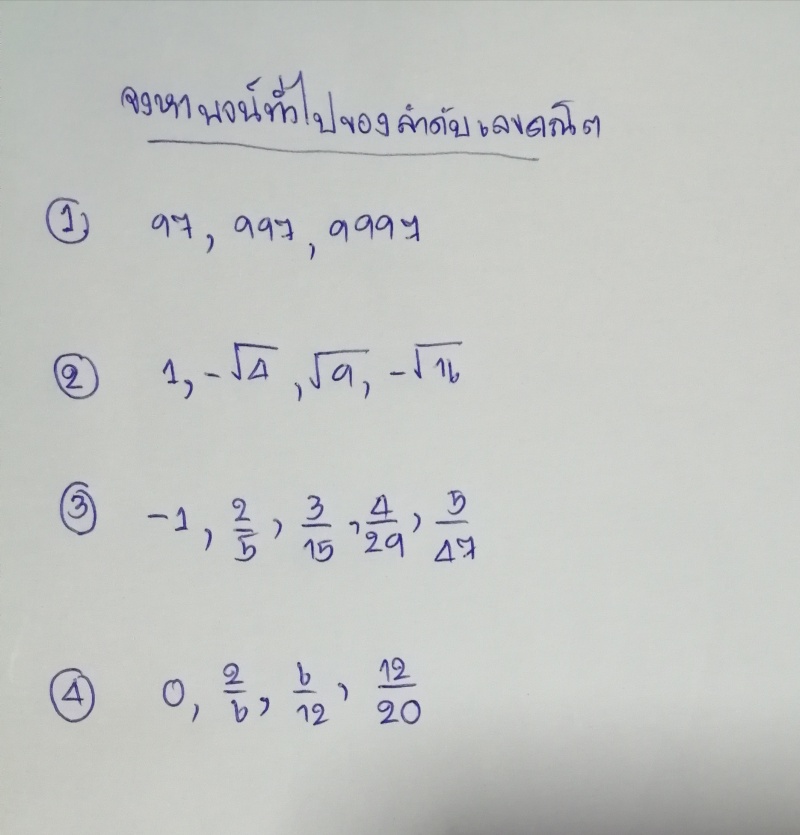 จงหาพจน์ทั่วไปของลำดับเลขคณิต
① 97, 997, 9997
② 1, -√4, √9, -√16
③ -1, 2/5, 3/15, 4/29, 5/47
④ 0, 2/6, 6/12, 12/20